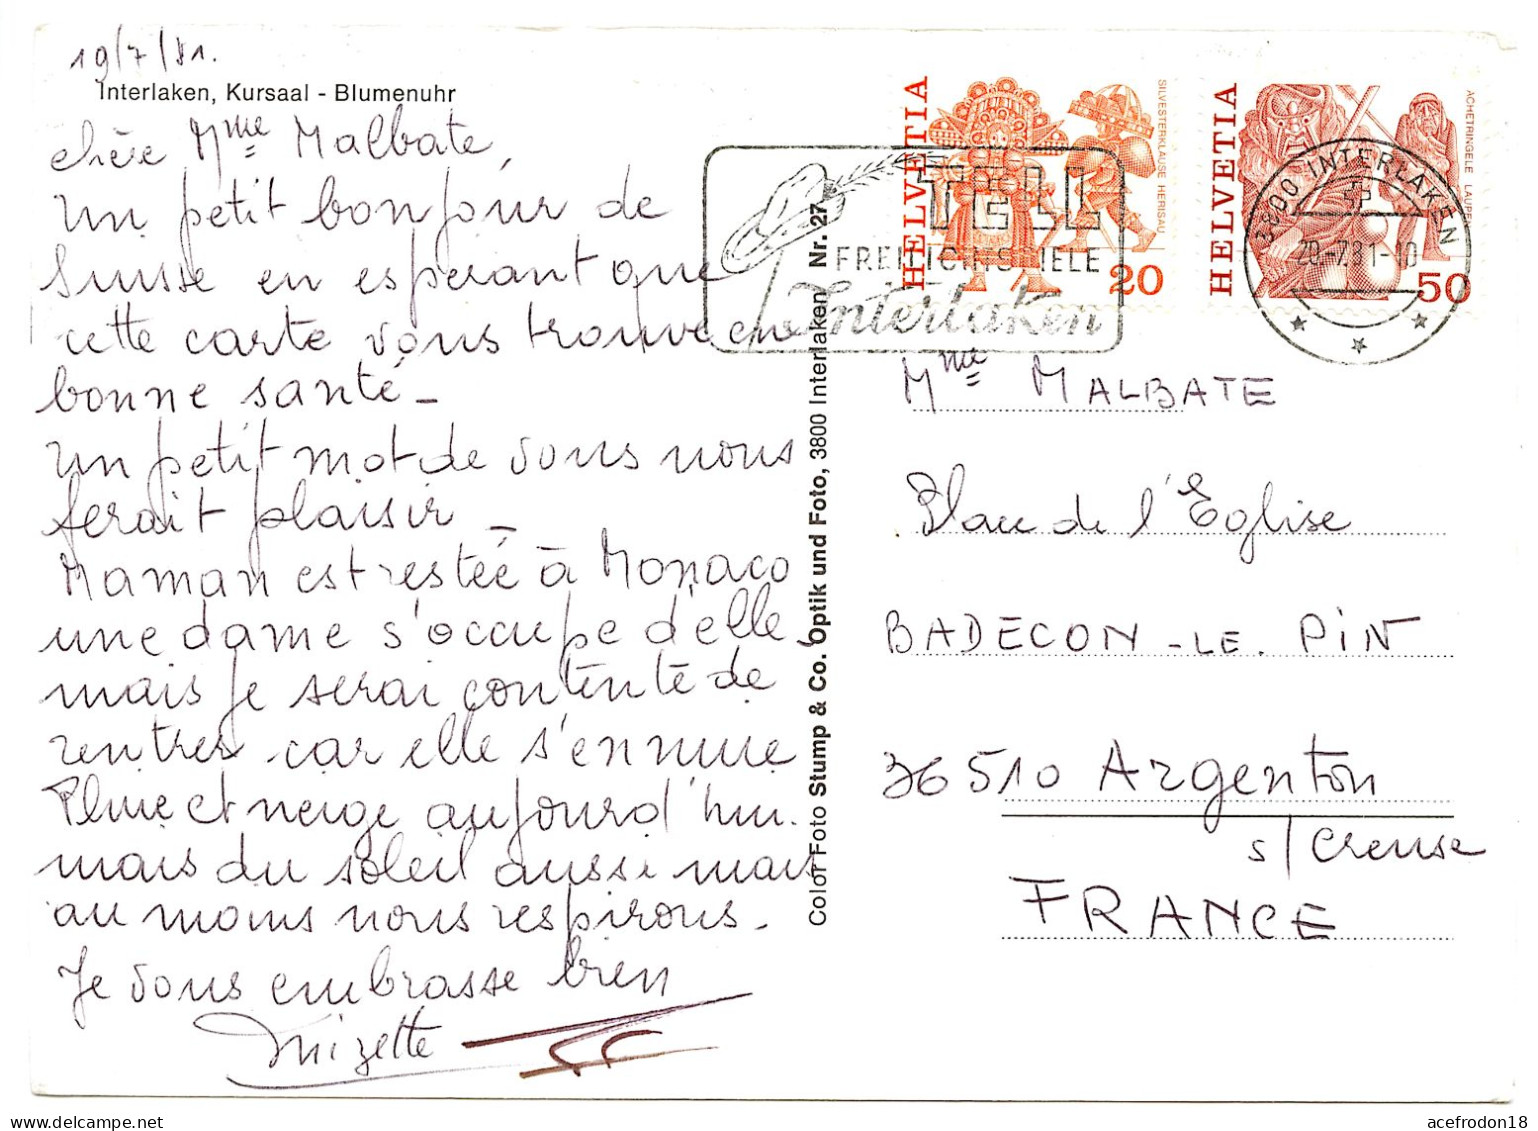 19/7/81.
Interlaken, Kursaal - Blumenuhr
chère Mme Malbate,
Un petit bonjour de
Suisse en esperant que
cette carte vous trouve en
bonne santé_
Un petit mot de vous nous
ferait plaisir_
Maman est restée à Monaco
une dame s'occupe d'elle,
mais je serai contente de
rentrer car elle s'ennuie
Pluie et neige aujourd'hui.
mais du soleil aussi mais
au moins nous respirons.
Je vous embrasse bien
Mizette
Color Foto Stump & Co. Optik und Foto, 3800 Interlaken Nr. 27
TELL
FREILICHTSPIELE
Interlaken
HELVETIA
SILVESTERKLAUSE HERISAU
20
HELVETIA
ACHETRINGELE LAUPEN
50
3800 INTERLAKEN
20.-7.81-10
Mme MALBATE
Place de l'Eglise
BADECON-LE.PIN
36510 Argenton
s/Creuse
FRANCE
acefrodon18